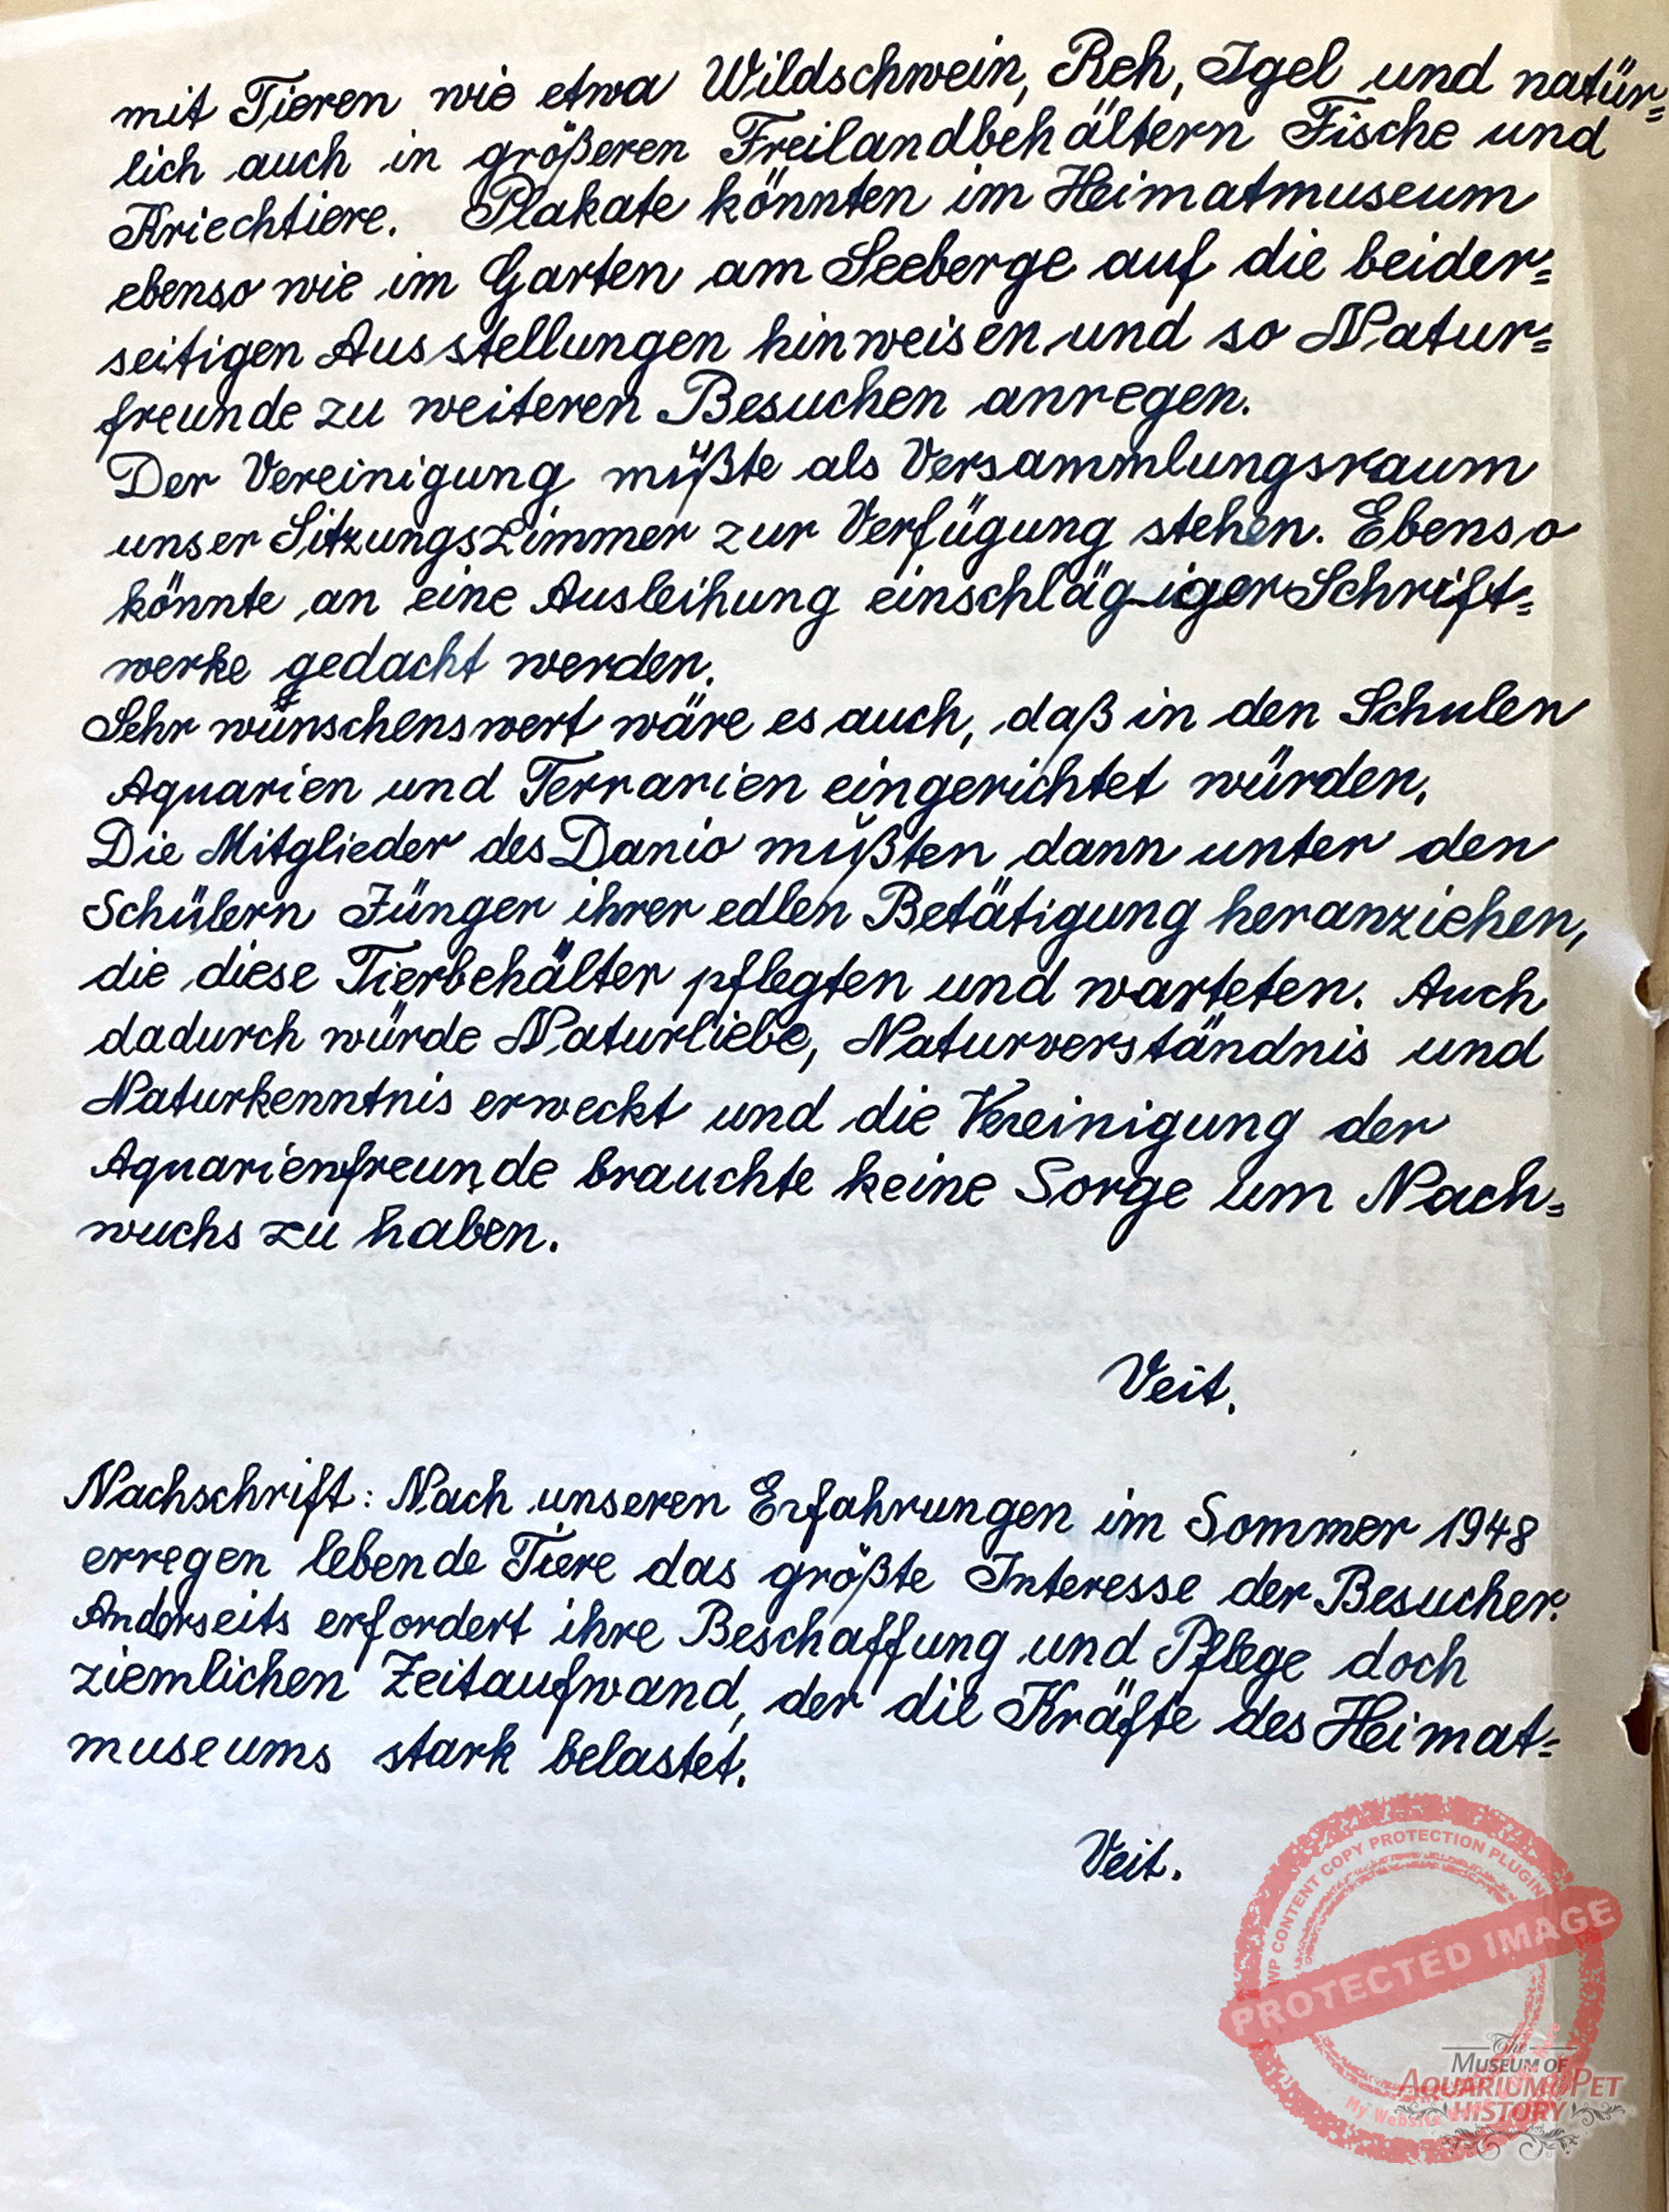 mit Tieren wie etwa Wildschwein, Reh, Igel und natür=
lich auch in größeren Freilandbehältern Fische und
Kriechtiere. Plakate könnten im Heimatmuseum
ebenso wie im Garten am Seeberge auf die beider=
seitigen Ausstellungen hinweisen und so Natur=
freunde zu weiteren Besuchen anregen.
Der Vereinigung müßte als Versammlungsraum
unser Sitzungszimmer zur Verfügung stehen. Ebenso
könnte an eine Ausleihung einschlägiger Schrift=
werke gedacht werden.
Sehr wünschenswert wäre es auch, daß in den Schulen
Aquarien und Terrarien eingerichtet würden.
Die Mitglieder des Danio müßten dann unter den
Schülern Jünger ihrer edlen Betätigung heranziehen,
die diese Tierbehälter pflegten und warteten. Auch
dadurch würde Naturliebe, Naturverständnis und
Naturkenntnis erweckt und die Vereinigung der
Aquarienfreunde brauchte keine Sorge um Nach=
wuchs zu haben.
Veit.
Nachschrift: Nach unseren Erfahrungen im Sommer 1948
erregen lebende Tiere das größte Interesse der Besucher.
Anderseits erfordert ihre Beschaffung und Pflege doch
ziemlichen Zeitaufwand, der die Kräfte des Heimat=
museums stark belastet.
Veit.
WP CONTENT COPY PROTECTION PLUGIN
PROTECTED IMAGE
My Website
The
MUSEUM OF
AQUARIUM & PET
HISTORY